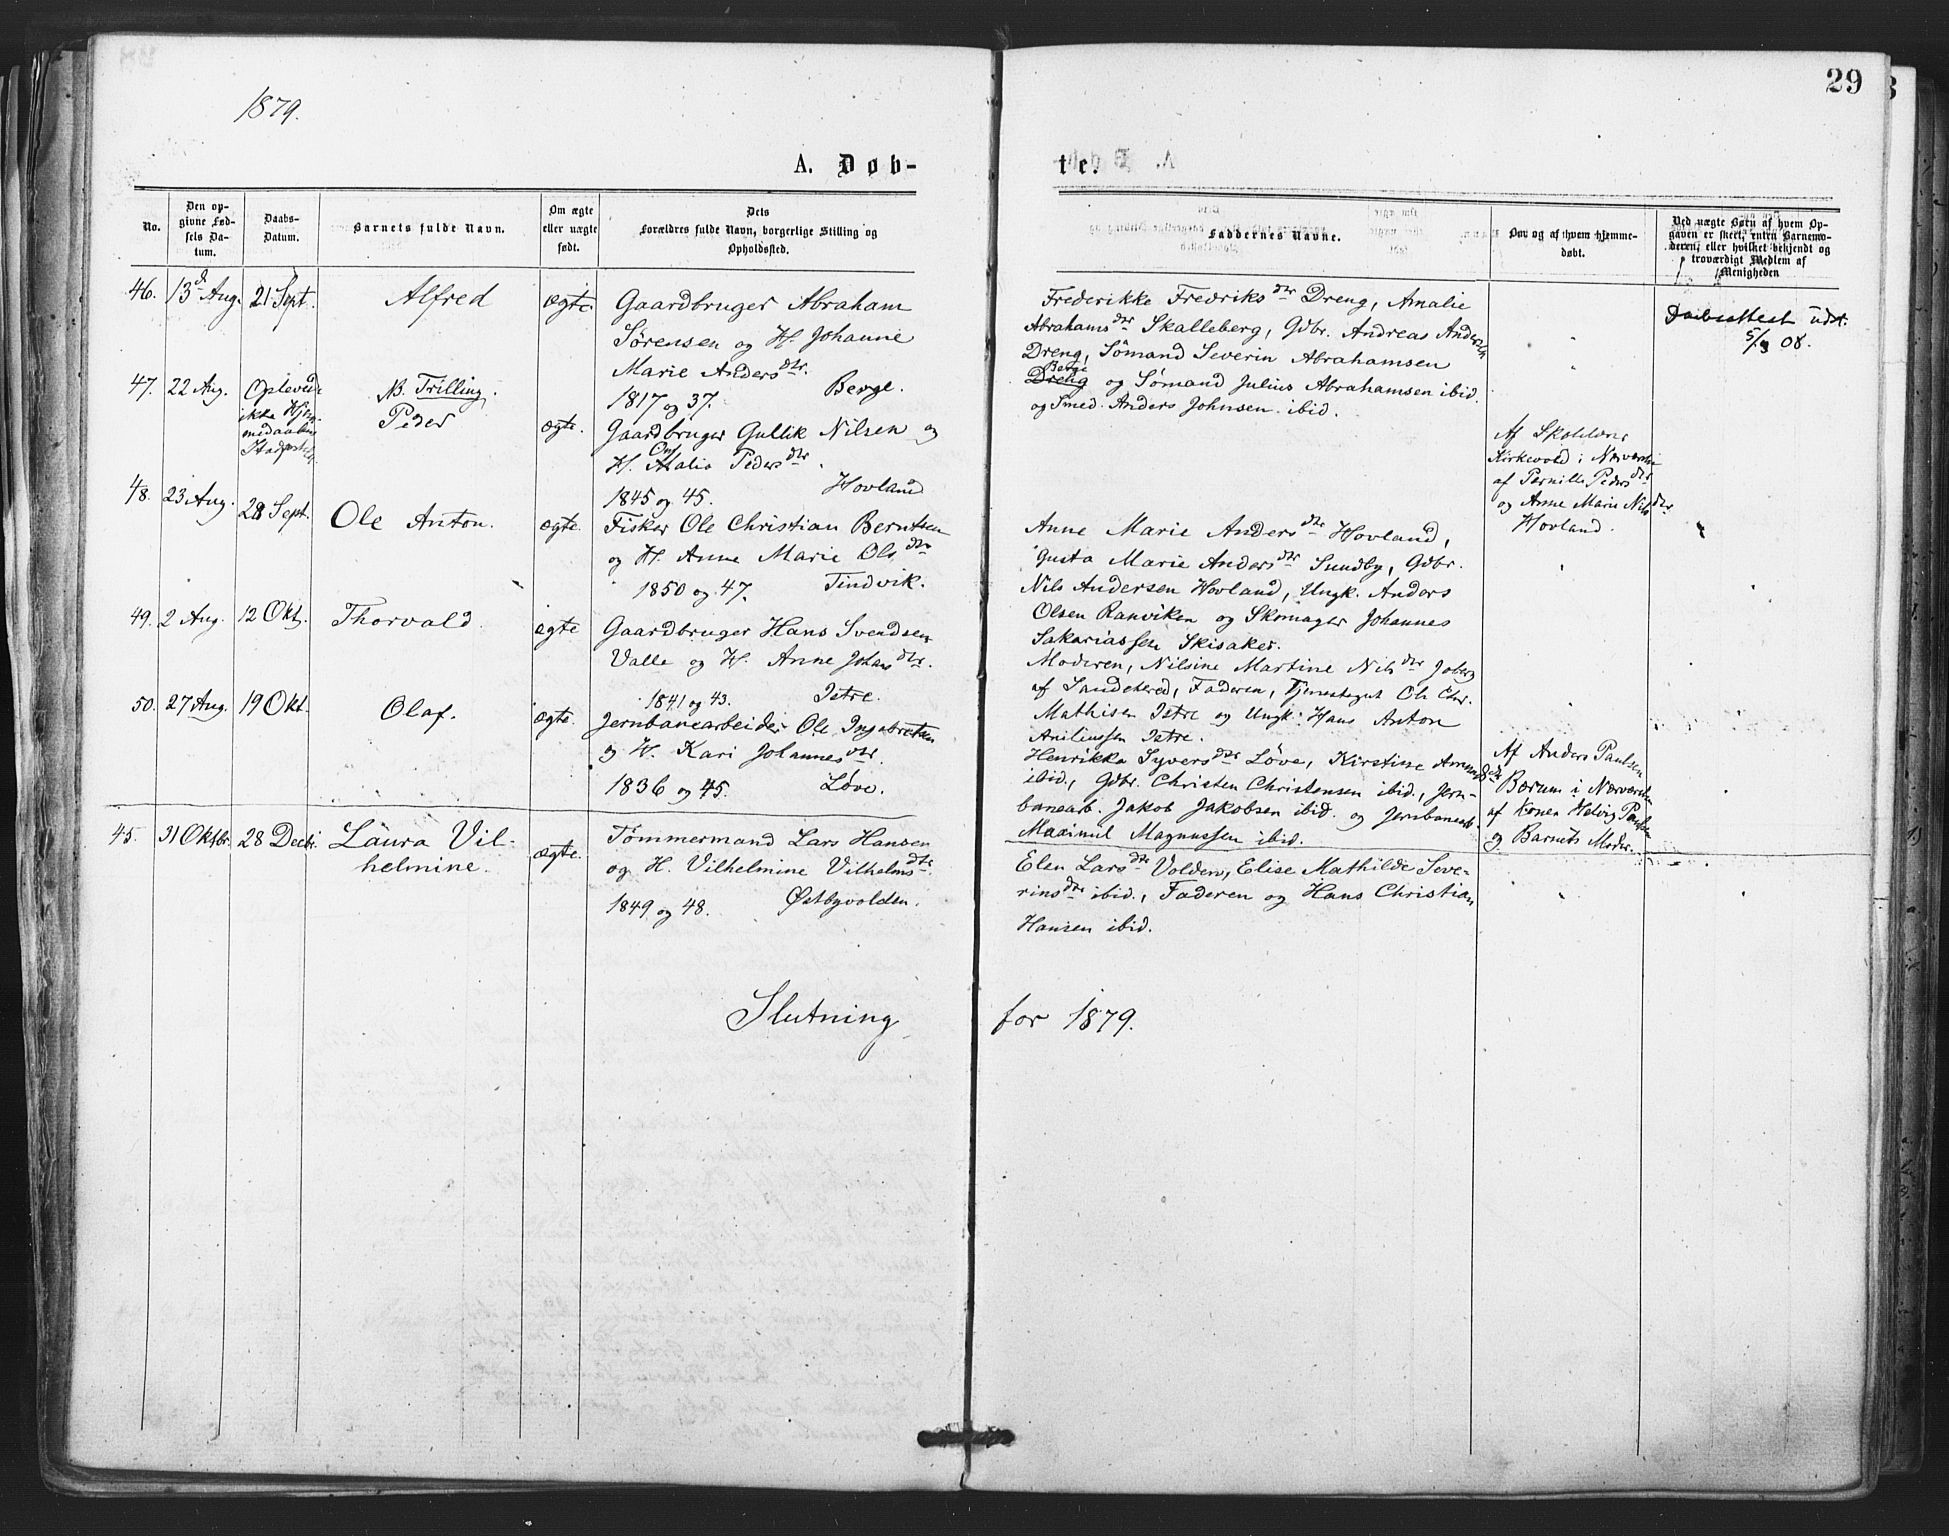 29
1879.
A. Døb-
te.
No.
Den op-
givne Fød-
sels Da-
tum.
Daabs-
Datum.
Barnets fulde Navn.
Om ægte
eller uægte
født.
Dets
Forældres fulde Navn, borgerlige Stilling og
Opholdssted.
Faddernes Navne.
Hvo og af hvem hjemme-
døbt.
Ved uægte Børn af hvem Op-
gaven er skeet, enten Barnemo-
deren, eller hvilket bekjendt og
troværdigt Medlem af
Menigheden
46. 13d Aug. 21 Sept. Alfred ægte.
Gaardbruger Abraham
Sørensen og H. Johanne
Marie Andersdtr.
1817 og 37. Berge.
Frederikke Fredriksdtr Dreng, Amalie
Abrahamsdtr Skalleberg, Gdbr. Andreas Andersen
Dreng, Sömand Severin Abrahamsen
Berge
Dreng og Sømand Julius Abrahamsen ibid.
og Smed. Anders Johnsen ibid.
Daabsattest udst.
5/9 08.
47. 22 Aug.
Oplevede
ikke Hjem-
medaabens
Stadfæstelse
N. Trilling.
Peder
ægte.
Gaardbruger Gullik Nilsen og
H. Malia Pedersdtr.
1845 og 45. Hovland
Af
Kirkevold i Nærværelse
af Pernille Pedersdtr
og Anne Marie Nilsdtr
Hovland.
48. 23 Aug. 28 Sept. Ole Anton. ægte.
Fisker Ole Christian Berntsen
og H. Anne Marie Olsdtr
1850 og 47. Tindvik.
Anne Marie Andersdtr Hovland,
Gusta Marie Andersdtr Sundby, Gdbr.
Nils Andersen Hovland, Ungk. Anders
Olsen Ranviken og Skomager Johannes
Sakariassen Skisaker.
49. 2 Aug. 12 Okt. Thorvald. ægte
Gaardbruger Hans Svendsen
Valle og H. Anne Johansdtr.
1841 og 43. Istre.
Moderen, Nilsine Martine Nilsdtr Joberg
af Sandehered, Faderen, Tjenestegut Ole Chr.
Mathisen Istre og Ungk. Hans Anton
Aniliussen Istre.
50. 27 Aug. 19 Okt. Olaf. ægte.
Jernbanearbeider Ole Ingebretsen
og H. Kari Johannesdtr.
1836 og 45. Løve.
Henrikka Syversdtr Løve, Kirstine Arnesdtr
ibid., Gdbr. Christen Christensen ibid., Jern-
banearb. Jakob Jakobsen ibid. og Jernbanearb.
Maximil Magnussen ibid.
Af Anders Paulsen
Bærum i Nærværelse
af Konen Helvig Paulsen
og Barnets Moder.
45. 31 Oktbr. 28 Decbr.
Laura Vil-
helmine.
ægte.
Tømmermand Lars Hansen
og H. Vilhelmine Vilhelmsdtr.
1849 og 48. Østbyvolden.
Elen Larsdtr Volden, Elise Mathilde Seve-
rinsdtr ibid., Faderen og Hans Christian
Hansen ibid.
Slutning for 1879.